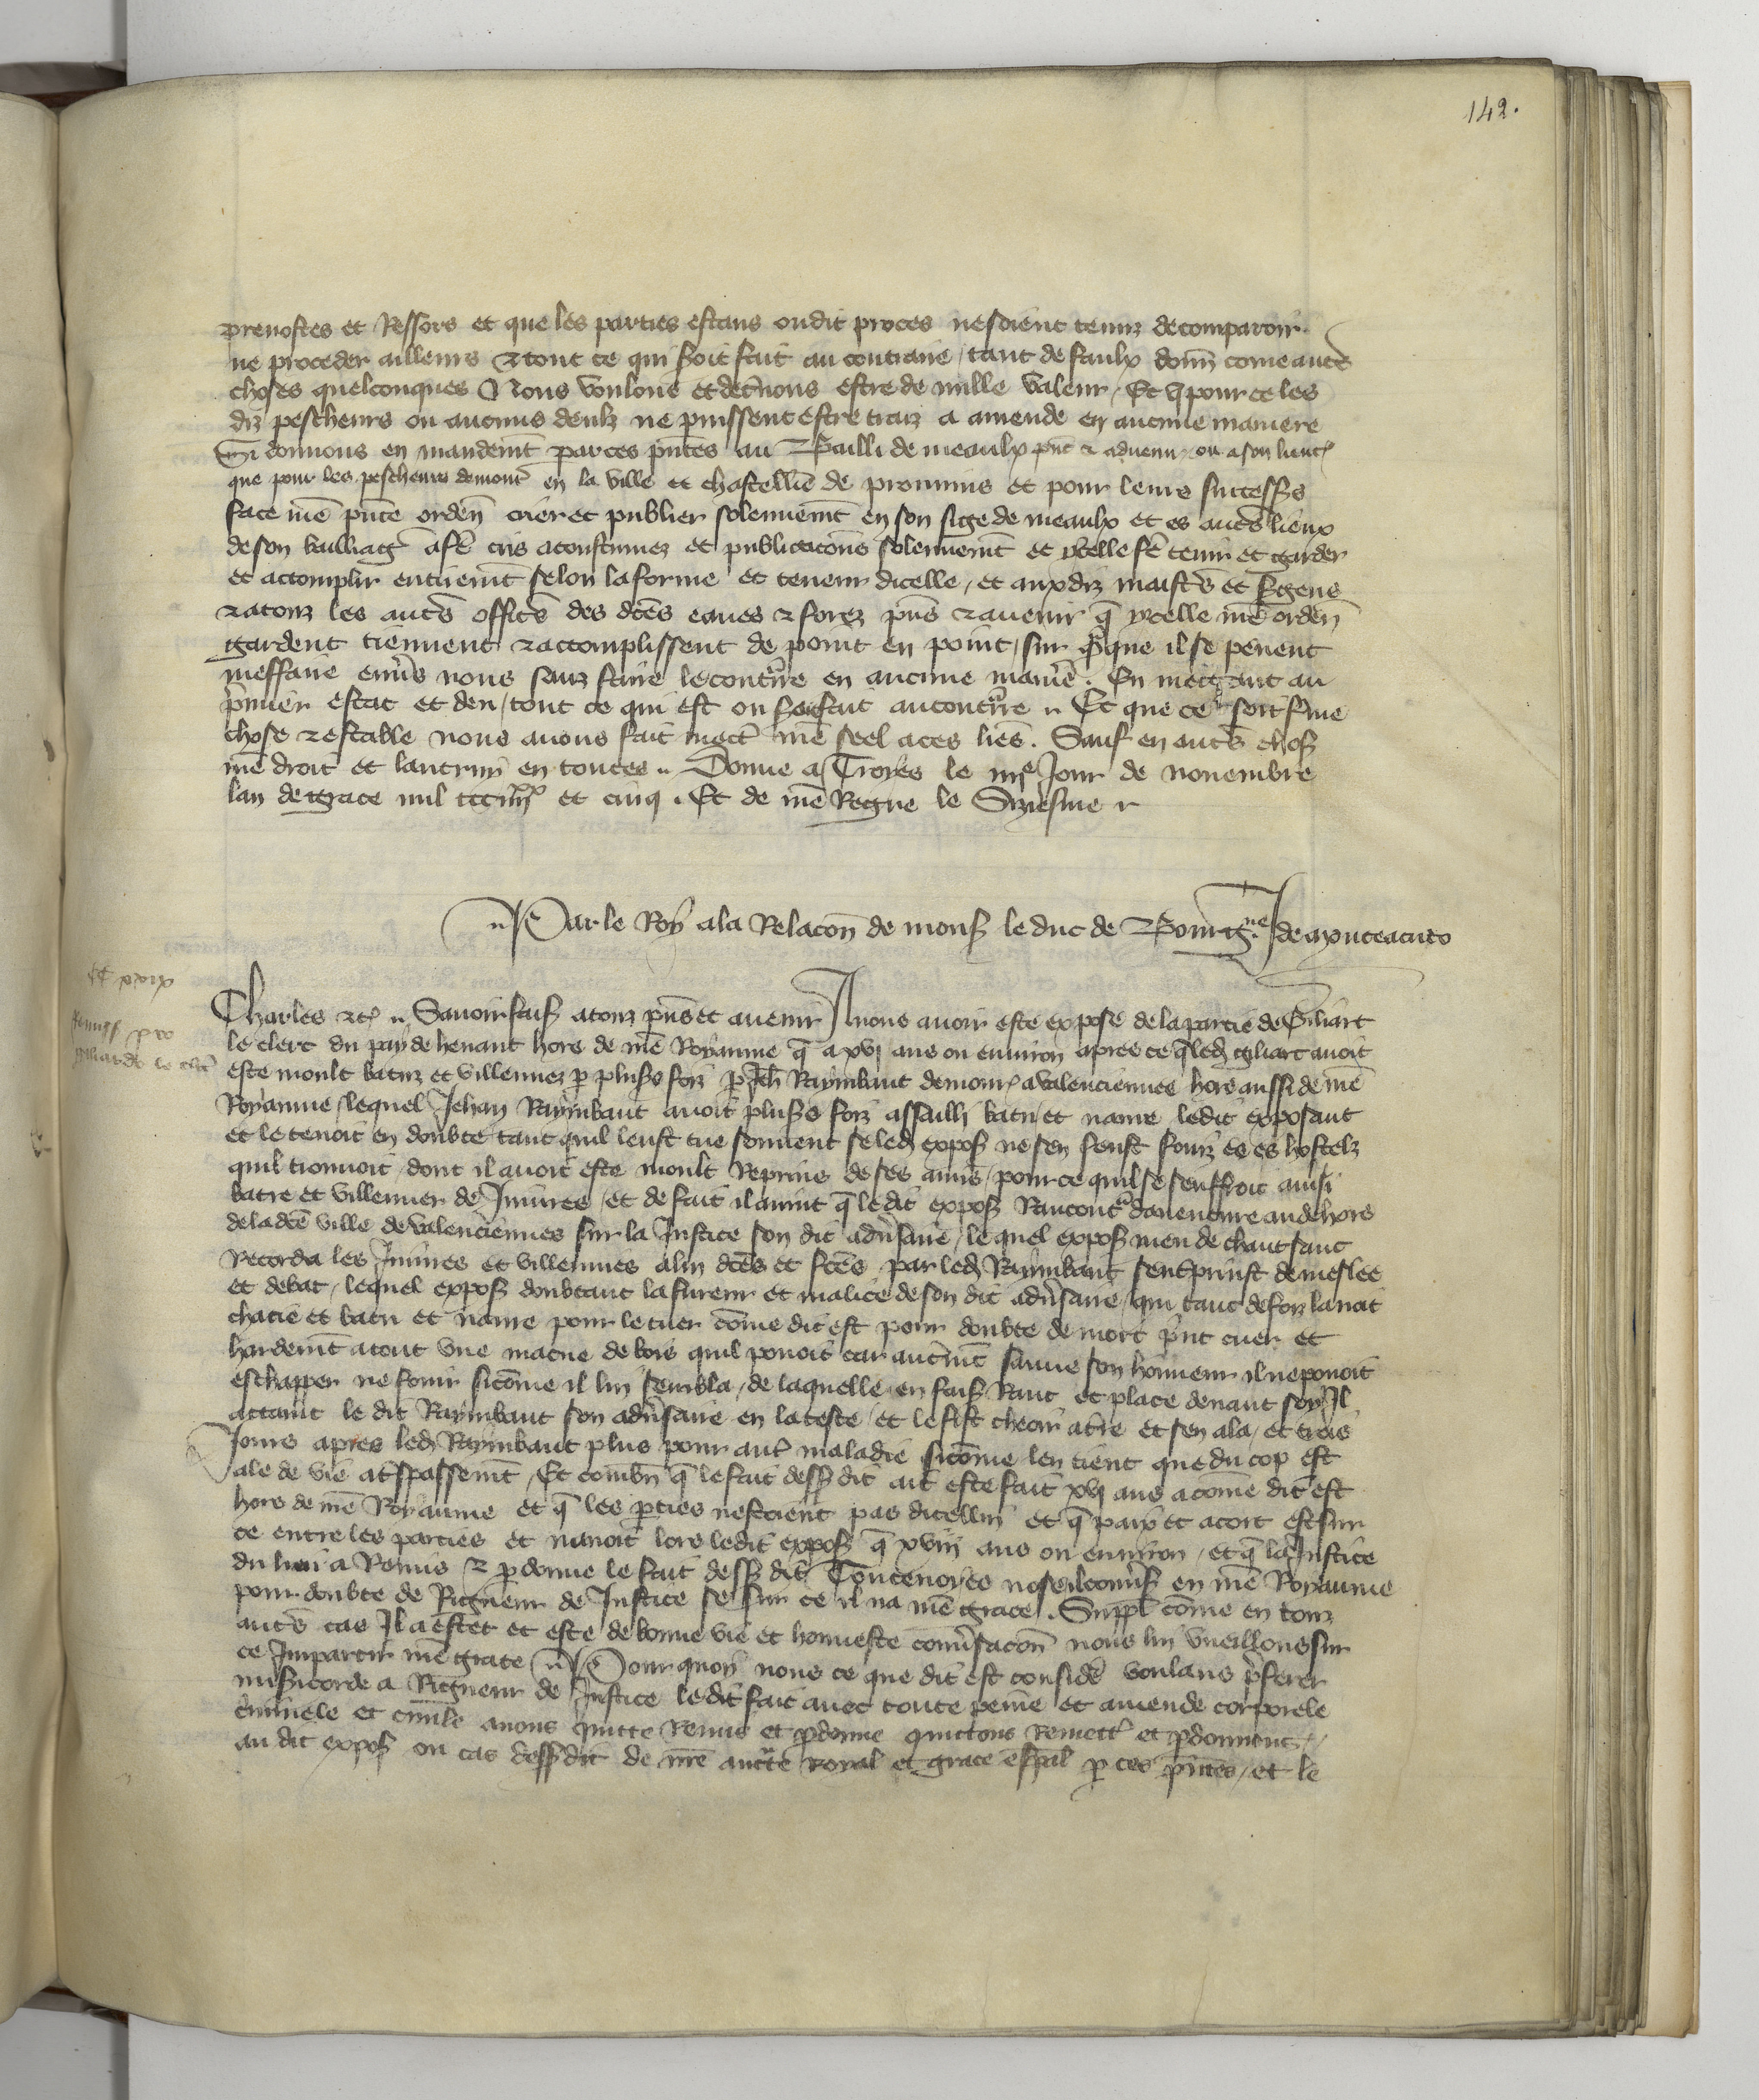 142.
prevostes et Ressors et que les parties estans oudit proces ne soient tenuz de comparoir
ne proceder ailleurs & tout ce qui seroit fait au contraire / tant de faulx donn come autres
choses quelconques Nous voulons et decernons estre de nulle valeur / Et q pour ce les
diz pescheurs ou aucuns deulz ne puissent estre traiz a amende en aucune maniere
Si donnons en mandemt par ces pntes au Bailli de meaulx pnt & advenir / ou a son lieut
que pour les pescheurs demour en la ville et chastellie de prouvins et pour leurs successrs
face nre pnte orden crier et publier solennemt en son siege de meaulx et es autrs lieux
de son bailliag a fe cris acoustumez et publicacions solennemt et ycelle fe tenir et garder
et acomplir entieremt selon la forme et teneur dicelle / et aux diz maistrs et sergens
& a touz les autrs offics des dces eaues & forez pns & avenir q ycelle nre orden
gardent tiennent & acomplissent de point en point / sur que il se pevent
meffaire envers nous sanz faire le contre en aucune manie . En mectant au
pmier estat et deu / tout ce qui est ou seroit fait au contre Et que ce soit ferme
chose & estable nous avons fait mectre nre seel a ces lres . Sauf en autrs choses
nre droit et lautruy en toutes Donne a Troyes le iiije Jour de novembre
lan de grace mil ccc iiijxx et cinq . Et de nre Regne le Siziesme
Par le Roy a la Relacon de mons le duc de Bourgne J de monteacuto
CC xxix
Remiss pro
Giliardo le clerc
Charles &c Savoir fais a touz pns et avenir A nous avoir este expose de la partie de Giliart
le clerc du pay de henaut hors de nre Royaume q a xvj ans ou environ apres ce q led giliart avoit
este moult batuz et villennez p plusrs foiz p Jeh Raymbaut demour a valenciennes hors aussi de nre
Royaume / lequel Jehan Raymbaut avoit plusrs foiz assailli batu et navre ledit exposant
et le tenoit en doubte tant quil leust tue souvent se led expos ne sen feust fouiz es es hostelz
quil trouvoit / dont il avoit este moult Reprins de ses amis / pour ce quil se seuffroit ainsi
batre et villenner de Injures / et de fait il avint q le dit expos Rancontra daventure au dehors
de la dce ville de valenciennes sur la Justice son dit adversaire / le quel expos meu de chaut sanc
Recorda les Injures et villennies a luy dces et fces par led Raymbaut sentreprinst de meslee
et debat / lequel expos doubtant la fureur et malice de son dit adversaire / qui tant de foiz lavoit
chacie et batu et navre pour le tuer come dit est pour doubte de mort print cuer et
hardemt atout une macue de bois quil povoit car autremt sauve son honneur il ne povoit
eschapper ne fouir sicome il luy sembla / de laquelle en fais Raut et place devant soy Il
actaint le dit Raymbaut son adversaire en la teste / et le fist cheoir a tre et sen ala / et trois
Jours apres led Raymbaut plus pour autre maladie sicome len tient que du cop est
ale de vie a trespassemt / Et combn q le fait dess dit ait este fait xvj ans a come dit est
hors de nre Royaume et q les pties nestoient pas dicelluy et q paix et acort est sur
ce entre les parties et navoit lors ledit expos q xviij ans ou environ / et q la Justice
du lieu a Remis & pdonne le fait dess dit Toutevoyes nose il convers en nre Royaume
pour doubte de Rigueur de Justice se sur ce il na nre grace . Suppl come en touz
autrs cas Il a este et este de bonne vie et honneste conversacon nous luy vueillons sur
ce Impartir nre grace Pour quoy nous ce que dit est consider voulans preferer
misericorde a Rigueur de Justice le dit fait avec toute peine et amende corporele
criminele et civile avons quitte Remis et pdonne quictons Remett et pdonnons
au dit expos ou cas dessdit de nre aucte royal et grace espal p ces pntes / et le